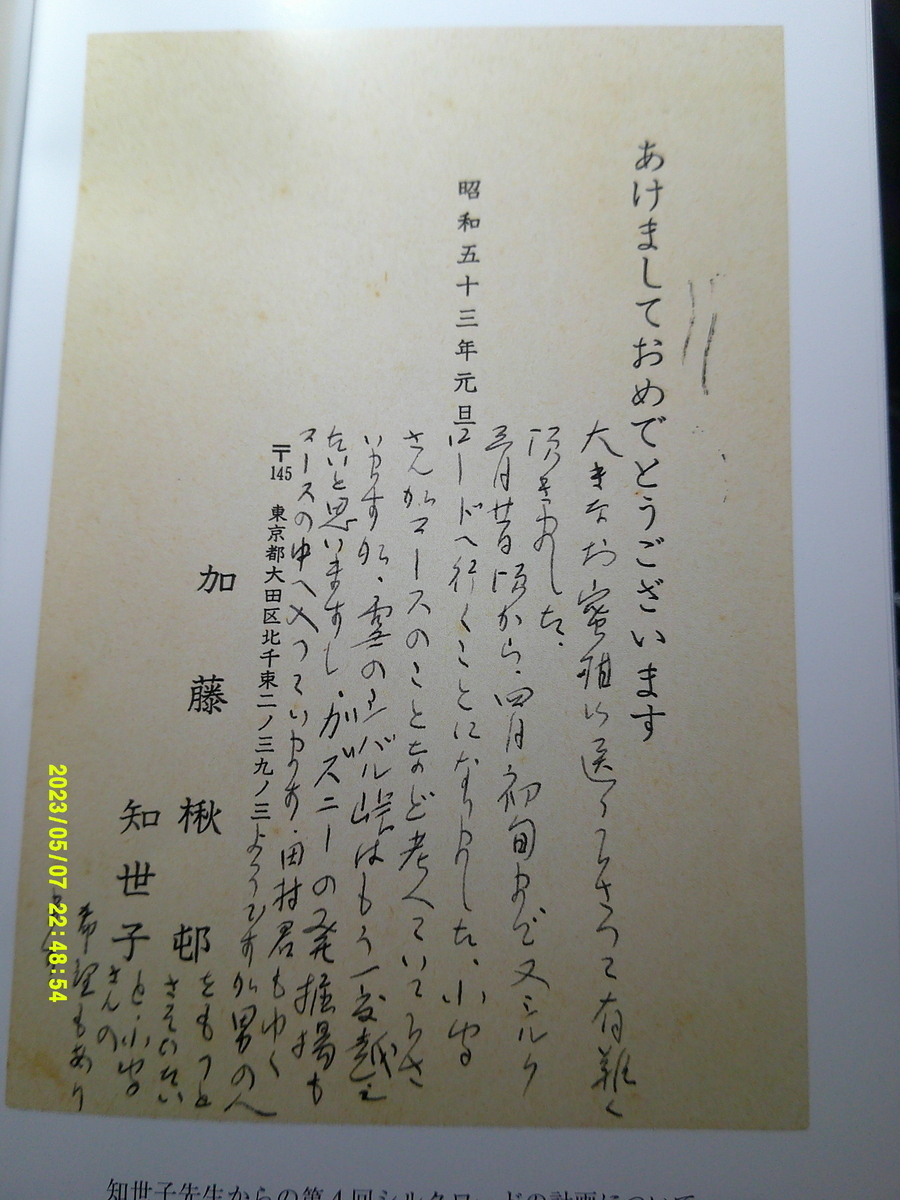 あけましておめでとうございます
大きなお蜜柑に送って下さって有難く
頂きました。
三月廿日頃から、四月初旬まで又シルク
ロードへ行くことになりました、小
さんがコースのことなど考へていて下さ
いますが、雪の バル峠はもう一度越え
たいと思いますし、ガズニーの発掘場も
コースの中へ入っています、田村君もゆく
ようですが男の人
をもっと
さそいたい
と、小
さんの
希望もあり
昭和五十三年元旦
〒145 東京都大田区北千束二ノ三九ノ三
加藤 楸邨
知世子
2023/05/07 22:48:54
知世子先生からの第4回シルクロードの計画について